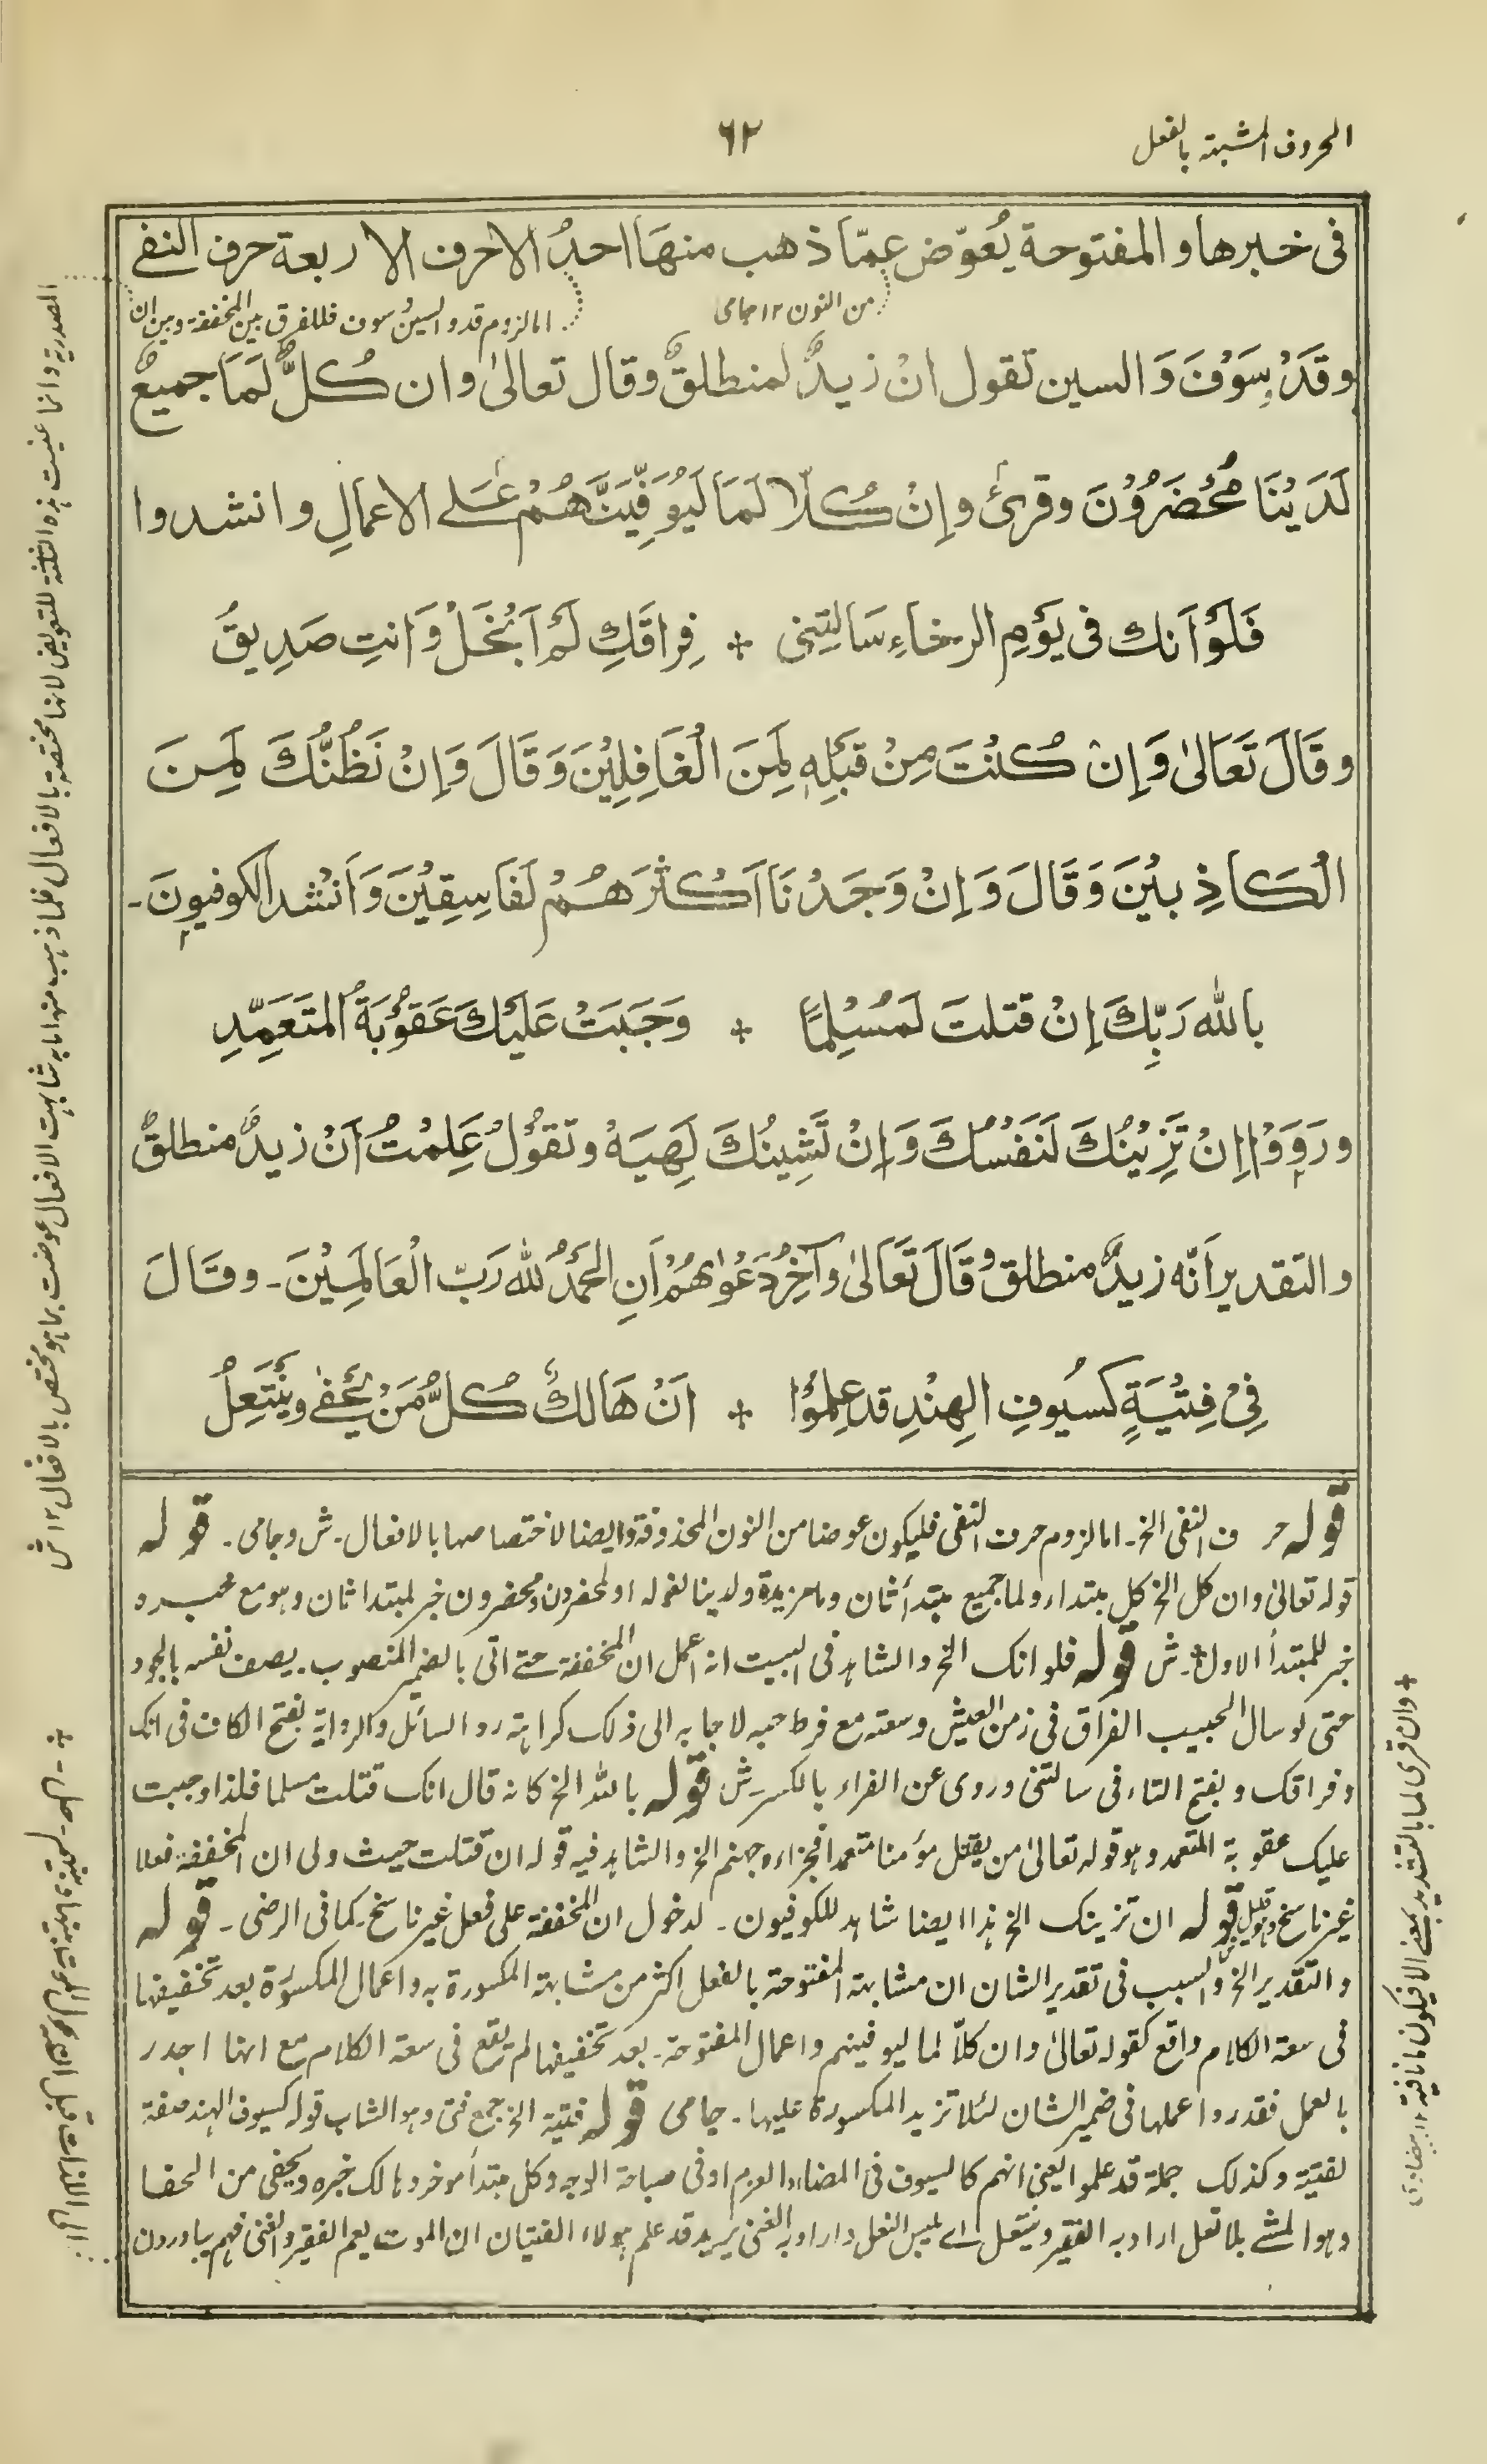 الحروف المشبهة بالفعل
٦٢
فى خبرها والمفتوحة يُعوّض عمّا ذهب منهَا احدُ الاحرف الاربعة حرف النفى
من النون ١٢ جامى
اما لزوم قد والسين وسوف فللفرق بين المخففة وبين ان
وقَدْ وسَوْفَ وَالسين تقول انْ زيدٌ لمنطلقٌ وقال تعالىٰ وان كُلٌّ لَمَا جميعٌ
لَدَيْنَا مُحْضَرُوْنَ وقرئ وإنْ كُلّا لَمَا لَيُوَفِّيَنَّهُمْ عَلى الاعمالِ وانشدوا
فَلَوْ اَنك فى يَوْمِ الرخاءِ سَالتِنى + فِراقَكِ لَمْ اَبْخَلْ وَانتِ صَدِيقُ
وقَالَ تَعَالىٰ وَإِنْ كُنْتَ مِنْ قَبْلِهٖ لَمِنَ الْغَافِلِيْنَ وَقَالَ وَإِنْ نَظُنُّكَ لَمِنَ
الْكَاذِبِيْنَ وَقَالَ وَإِنْ وَجَدْنَا اَكْثَرَهُمْ لَفَاسِقِيْنَ وَاَنْشد الكوفيونَ۔
بالله رَبِّكَ إنْ قتلتَ لَمُسْلِمًا + وَجَبَتْ عَلَيْكَ عَقُوْبَةُ المتَعَمِّدِ
ورَوَوْا إنْ تَزِيْنُكَ لَنَفْسُكَ وَإنْ تَشِينُكَ لَهِيَهْ وتقوُلُ عَلِمْتُ اَنْ زيدٌ منطلقٌ
والتقدير اَنّه زيدٌ منطلق وقَالَ تَعَالىٰ وآخِرُ دَعْوٰهُمْ اَنِ الحَمْدُ لله رَبّ الْعَالَمِيْنَ۔ وقَالَ
فِىْ فِتْيَةٍ كسُيُوفِ الهِنْدِ قد عِلمُوْا + انْ هَالكٌ كُلُّ مَنْ يَحْفىٰ وينْتَعِلُ
قوله حرف النفى الخ۔ اما لزوم حرف النفى فليكون عوضا من النون المحذوفة وايضا لاختصاصها بالافعال۔ ش وجامى۔ قوله
قوله تعالىٰ وان كل الخ كل مبتداء ولما جميع مبتدأ ثان وما مزيدة ولدينا لقوله او لمحضرون ومحضرون خبر لمبتدا ثان وهو مع خبره
خبر للمبتدأ الاول۔ ش قوله فلو انك الخ والشاهد فى البيت انه اعمل ان المخففة حتى اتى بالضمير المنصوب۔ يصف نفسه بالجود
حتى لو سال الحبيب الفراق فى زمن العيش وسعته مع فرط حبه لاجابه الى ذلك كراهة رد السائل والرواية بفتح الكاف فى انك
وفراقك وبفتح التاء فى سالتنى وروى عن الفراء بالكسر ش قوله بالله الخ كانه قال انك قتلت مسلما فلذا وجبت
عليك عقوبة المتعمد وهو قوله تعالىٰ من يقتل مؤمنا متعمدا فجزاءه جهنم الخ والشاهد فيه قوله ان قتلت حيث ولى ان المخففة فعلا
غير ناسخ وهو قليل قوله ان تزينك الخ هذا ايضا شاهد للكوفيون۔ لدخول ان المخففة على فعل غير ناسخ۔ كما فى الرضى۔ قوله
والتقدير الخ والسبب فى تقدير الشان ان مشابهة المفتوحة بالفعل اكثر من مشابهة المكسورة به واعمال المكسورة بعد تخفيفها
فى سعة الكلام واقع كقوله تعالىٰ وان كلّا لما ليوفينهم واعمال المفتوحة۔ بعد تخفيفها لم يقع فى سعة الكلام مع انها اجدر
بالعمل فقدروا عملها فى ضمير الشان لئلا تزيد المكسورة عليها۔ جامى قوله فتية الخ جمع فتى وهو الشاب قوله كسيوف الهند صفة
لفتية وكذلك جملة قد علموا يعنى انهم كالسيوف فى المضاء والعزم او فى صباحة الوجه وكل مبتدأ موخر وهالك خبره ويحفى من الحفا
وهو المشى بلا نعل اراد به الفقير وينتعل اى يلبس النعل واراد به الغنى يريد قد علم هولاء الفتيان ان الموت يعم الفقير والغنى فهم يبادرون
المصدرية وانما عنيت هذه الثلثة للتعويض لانها مختصة بالافعال فلما ذهب منها ما به شابهت الافعال عوضت بما هو مختص بالافعال ١٢ ش
+ وان قرئ لما بالتشديد بمعنى الا فيكون ما نافية ١٢ بيضاوى